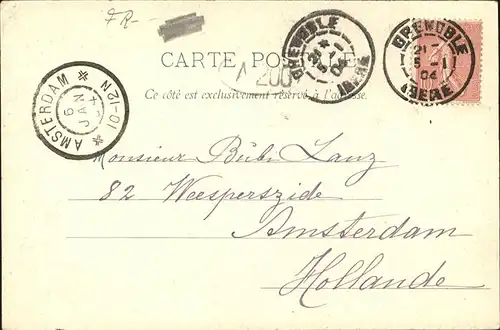 FR-
CARTE POSTALE
Ce côté est exclusivement réservé à l'adresse.
GRENOBLE
ISERE
GRENOBLE
21
5-1
04
ISERE
AMSTERDAM
6
JAN
4
10-12N
Monsieur Lanz
82 Weesperszide
Amsterdam
Hollande